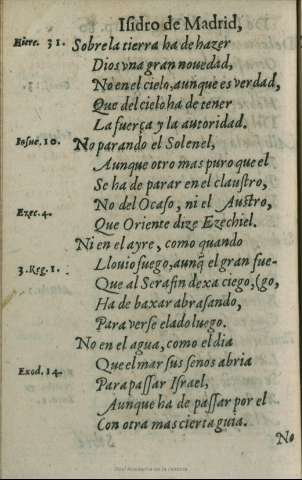 Isidro de Madrid,
Hiere. 31. Sobre la tierra ha de hazer
Dios vna gran nouedad,
No en el cielo, aunque es verdad,
Que del cielo ha de tener
La fuerça y la autoridad.
Iosue. 10. No parando el Sol en el,
Aunque otro mas puro que el
Se ha de parar en el claustro,
No del Ocaso, ni el Austro,
Ezec. 4. Que Oriente dize Ezechiel.
Ni en el ayre, como quando
3. Reg. 1. Llouio fuego, aunq̃ el gran fue-
Que al Serafin dexa ciego, (go,
Ha de baxar abrasando,
Para verse elado luego.
No en el agua, como el dia
Exod. 14. Que el mar sus senos abria
Para passar Israel,
Aunque ha de passar por el
Con otra mas cierta guia.
No
Real Academia de la Historia